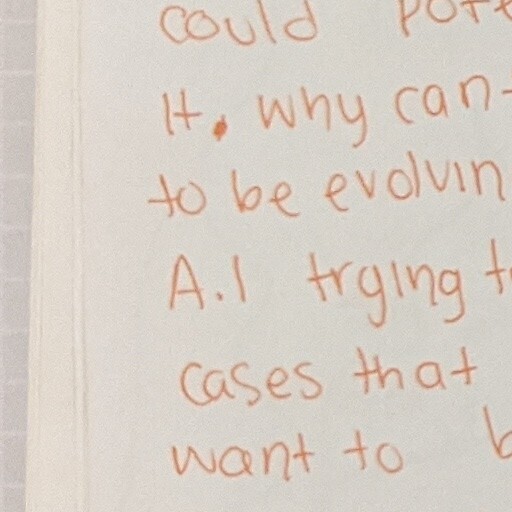 could
It. why can
to be evolvin
A.I trying t
cases that
want to b